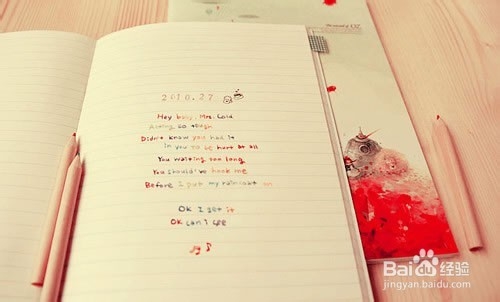 2010.27
Hey baby, Mrs. Cold
Acting so tough
Didn't know you had it
In you to be hurt at all
You waiting too long
You should've hook me
Before I put my raincoat on
OK I get it
OK can I see
Bai du 经验
jingyan.baidu.com